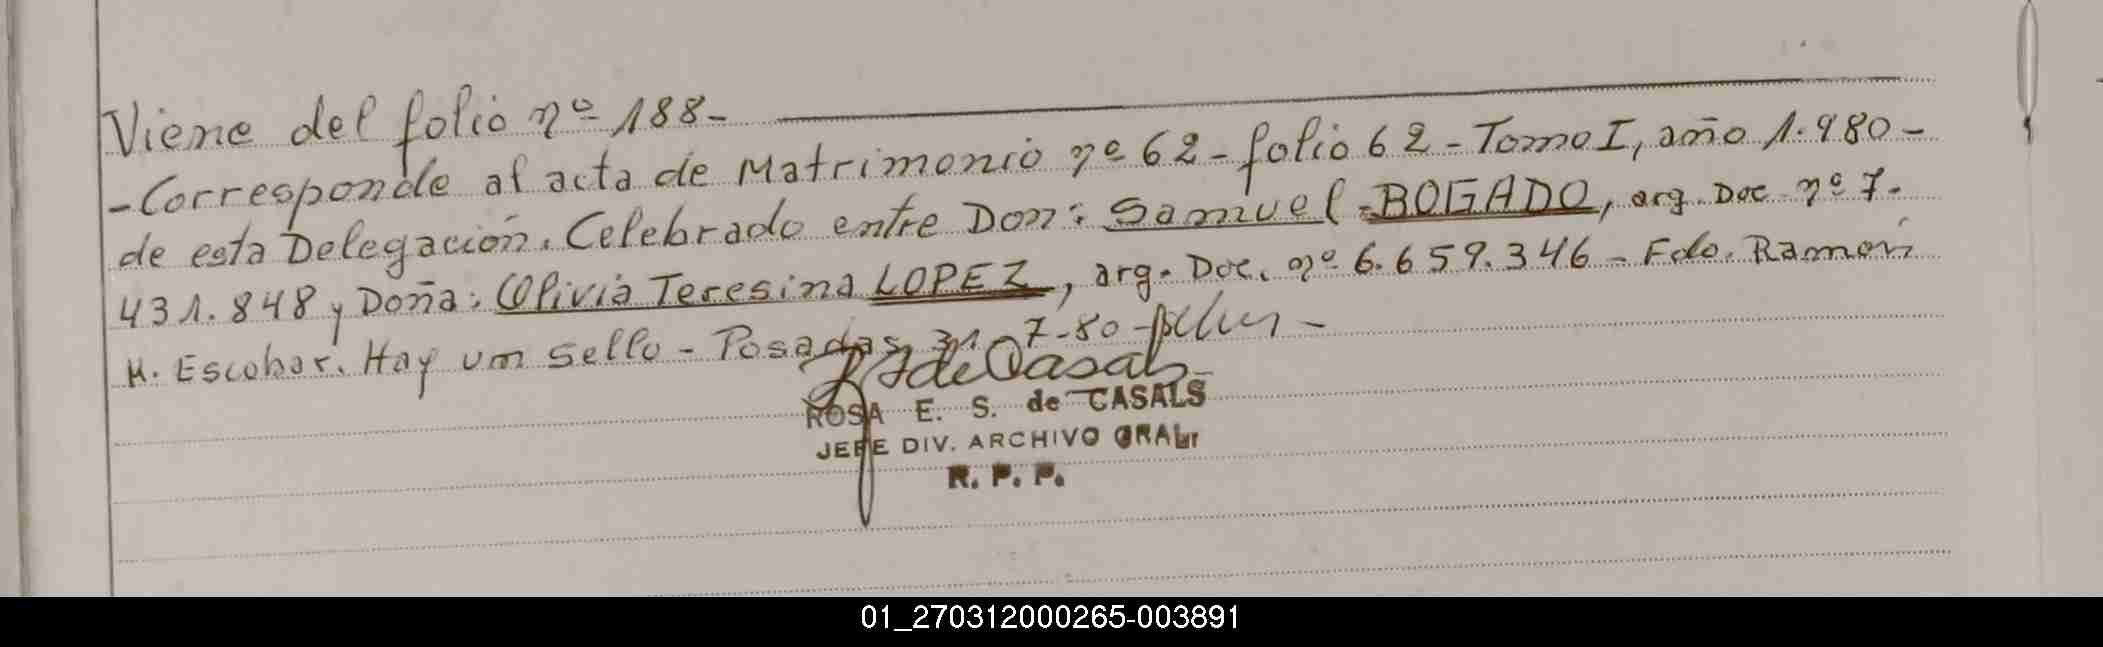 Viene del folio nº 188-
-Corresponde al acta de Matrimonio nº 62-folio 62-Tomo I, año 1.980-
de esta Delegación. Celebrado entre Don: Samuel-BOGADO, arg. Doc. nº 7.
431.848 y Doña: Olivia Teresina LOPEZ, arg. Doc. nº 6.659.346-Fdo. Ramón
H. Escobar. Hay un sello-Posadas, 31 7-80-
ROSA E. S. de CASALS
JEFE DIV. ARCHIVO GRAL.
R. P. P.
01_270312000265-003891